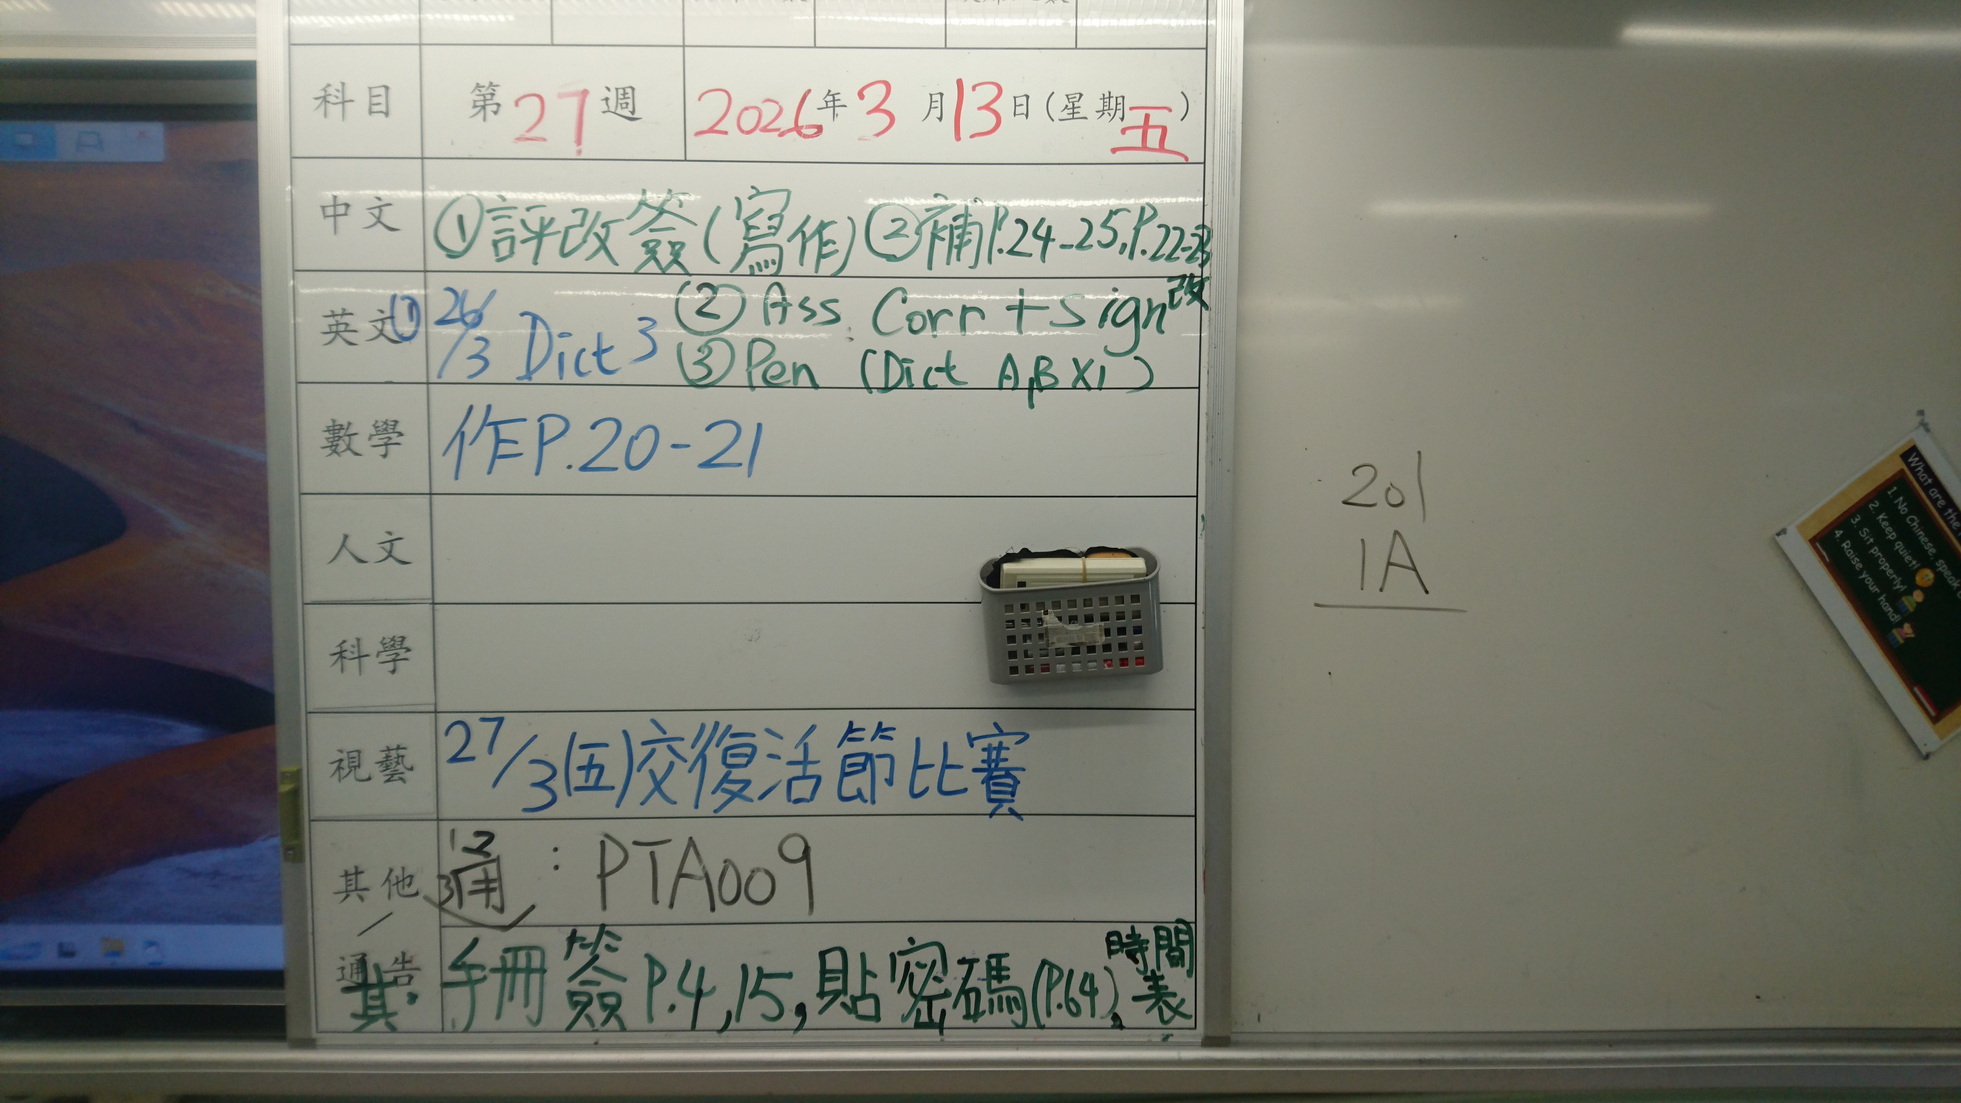 科目 第27週 2026年3月13日(星期五)
中文 ①評改簽(寫作)②補P.24-25,P.22-23
英文 ① 26/3 Dict 3 ② Ass Corr + Sign 改
③ Pen (Dict A,B X1)
數學 作P.20-21
人文
科學
視藝 27/3(五)交復活節比賽
其他 通:PTA009
通告 其. 手冊簽P.4,15,貼密碼(P.64),時間表
201
1A
What are the
1. No Chinese, speak
2. Keep quiet!
3. Sit properly!
4. Raise your hand!